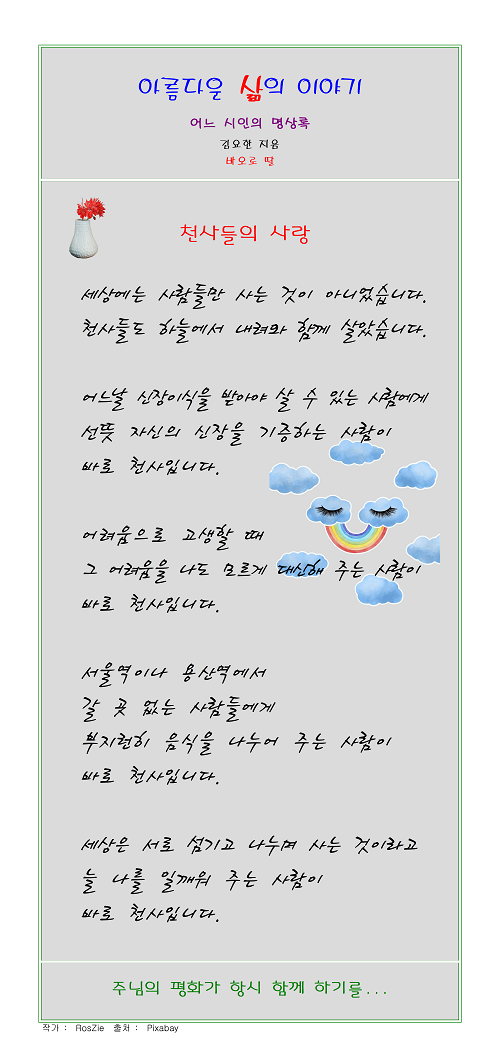 아름다운 삶의 이야기
어느 시인의 명상록
김요한 지음
바오로 딸
천사들의 사랑
세상에는 사람들만 사는 것이 아니었습니다.
천사들도 하늘에서 내려와 함께 살았습니다.
어느날 신장이식을 받아야 살 수 있는 사람에게
선뜻 자신의 신장을 기증하는 사람이
바로 천사입니다.
어려움으로 고생할 때
그 어려움을 나도 모르게 대신해 주는 사람이
바로 천사입니다.
서울역이나 용산역에서
갈 곳 없는 사람들에게
부지런히 음식을 나누어 주는 사람이
바로 천사입니다.
세상은 서로 섬기고 나누며 사는 것이라고
늘 나를 일깨워 주는 사람이
바로 천사입니다.
주님의 평화가 항시 함께 하기를...
작가 : RosZie 출처 : Pixabay